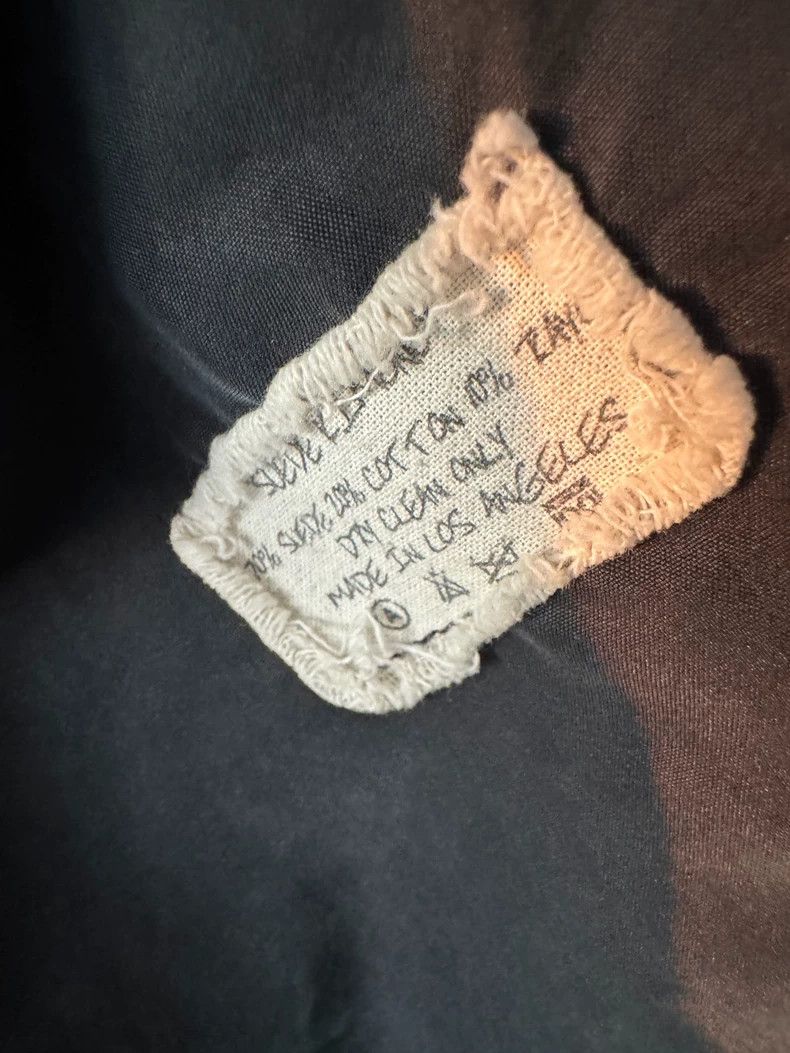 SUEDE
70% SUEDE 20% COTTON 10%
DRY CLEAN ONLY
MADE IN LOS ANGELES
A